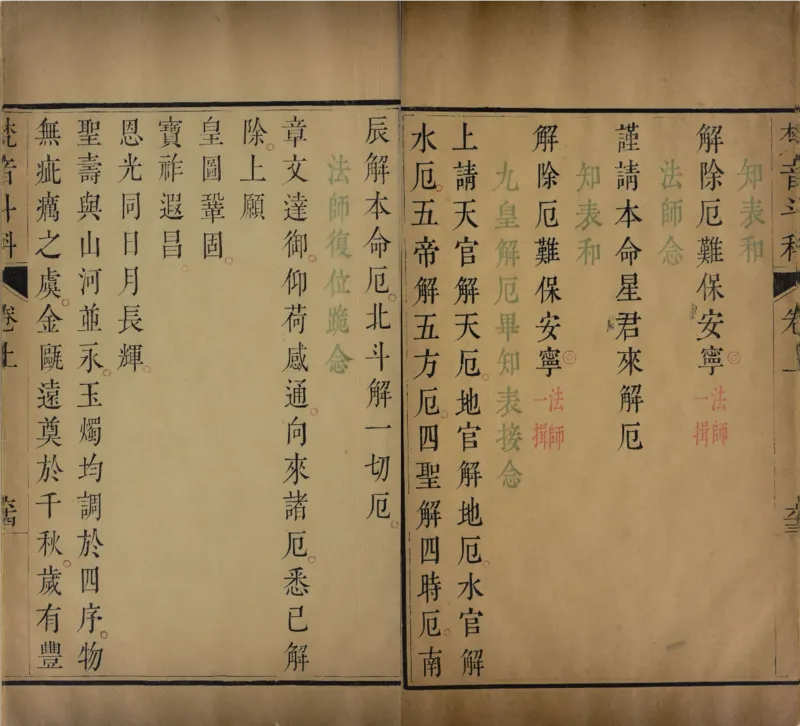 梵音斗科 卷上
知表和
解除厄難保安寧 法師一揖
法師念
謹請本命星君來解厄
知表和
解除厄難保安寧 法師一揖
九皇解厄畢知表接念
上請天官解天厄。地官解地厄。水官解
水厄。五帝解五方厄。四聖解四時厄。南
辰解本命厄。北斗解一切厄。
法師復位跪念
章文達御。仰荷感通。向來諸厄。悉已解
除。上願
皇圖鞏固。
寶祚遐昌。
恩光同日月長輝。
聖壽與山河並永。玉燭均調於四序。物
無疵癘之虞。金甌遠奠於千秋。歲有豐
梵音斗科 卷上